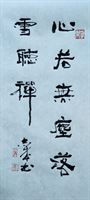 心若無塵落
雪聽禪